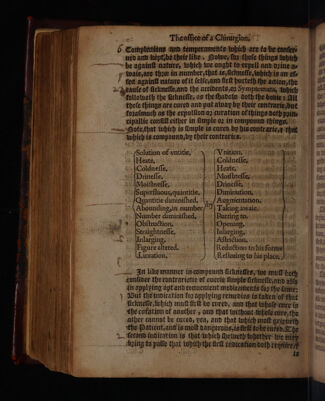 The office of a Chirurgion.
6 Complexions and temperaments which are to be conser-
ued and kept, by their like. Now, for those things which
be against nature, which we ought to expell and driue a-
waie, are thre in number, that is, sicknesse, which is an ef-
fect against nature of it selfe, and first hurteth the action, the
cause of sicknesse, and the accidents or Symptomata, which
followeth the sicknesse, as the shadow doth the bodie: All
those things are cured and put away by their contrarie, but
forasmuch as the expulsion or curation of things doth prin-
cipallie consist either in simple or in compound things.
Note, that which is simple is cured by his contrarie, & that
which is compound, by their contraries.
Solution of vnitie, Vnition.
Heate, Coldnesse.
Coldnesse, Heate.
Drinesse, Moistnesse.
Moistnesse, Drinesse.
Superfluous, quantitie, Diminution.
Quantitie diminished, Augmentation.
Abounding, in number by Taking awaie.
Number diminished, Putting to.
Obstruction, Opening.
Straightnesse, Inlarging.
Inlarging, Astriction.
Figure altered. Reduction to his forme
Luxation, Restoring to his place.
In like manner in compound sicknesses, we must both
consider the contrarietie of euerie simple sicknesse, and also
in applying apt and conuenient medicaments for the same:
But the indication for applying remedies is taken of that
sicknesse, which must first be cured, and that whose cure is
the cessation of another, and that without whose cure, the
other cannot be cured, yea, and that which most grieueth
the Patient, and is most dangerous, is first to be cured. The
second indication is that which sheweth whether we may
bring to passe that which the first indication doth require, &
is